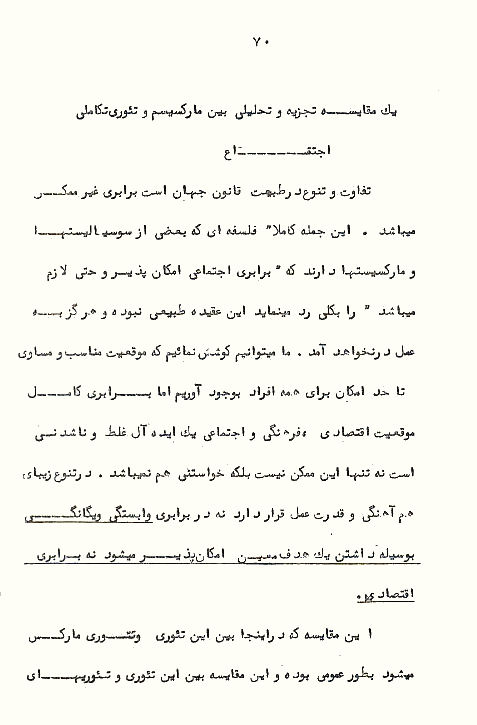 ۷۰
يك مقايســـه تجزيه و تحليلى بين ماركسيسم و تئورى تكاملى
اجتمـــــــاع
تفاوت و تنوع در طبيعت قانون جهان است برابرى غير ممكـــن
ميباشد . اين جمله كاملا" فلسفه اى كه بعضى از سوسياليستهـــا
و ماركسيستها دارند كه " برابرى اجتماعى امكان پذيـــر و حتى لازم
ميباشد " را بكلى رد مينمايد اين عقيده طبيعى نبوده و هرگز بـــه
عمل درنخواهد آمد . ما ميتوانيم كوشش نمائيم كه موقعيت مناسب و مساوى
تا حد امكان براى همه افراد بوجود آوريم اما بـــرابرى كامـــل
موقعيت اقتصادى ، فرهنگى و اجتماعى يك ايده آل غلط و ناشدنـى
است نه تنها اين ممكن نيست بلكه خواستنى هم نميباشد . در تنوع زيباى
هم آهنگى و قدرت عمل قرار دارد نه در برابرى وابستگى ويگانگـــى
بوسيله داشتن يك هدف معيـــن امكان پذيـــر ميشود نه بـــرابرى
اقتصادى .
اين مقايسه كه در اينجا بين اين تئورى وتئـــورى ماركـــس
ميشود بطور عمومى بوده و اين مقايسه بين اين تئورى و تئوريهـــاى